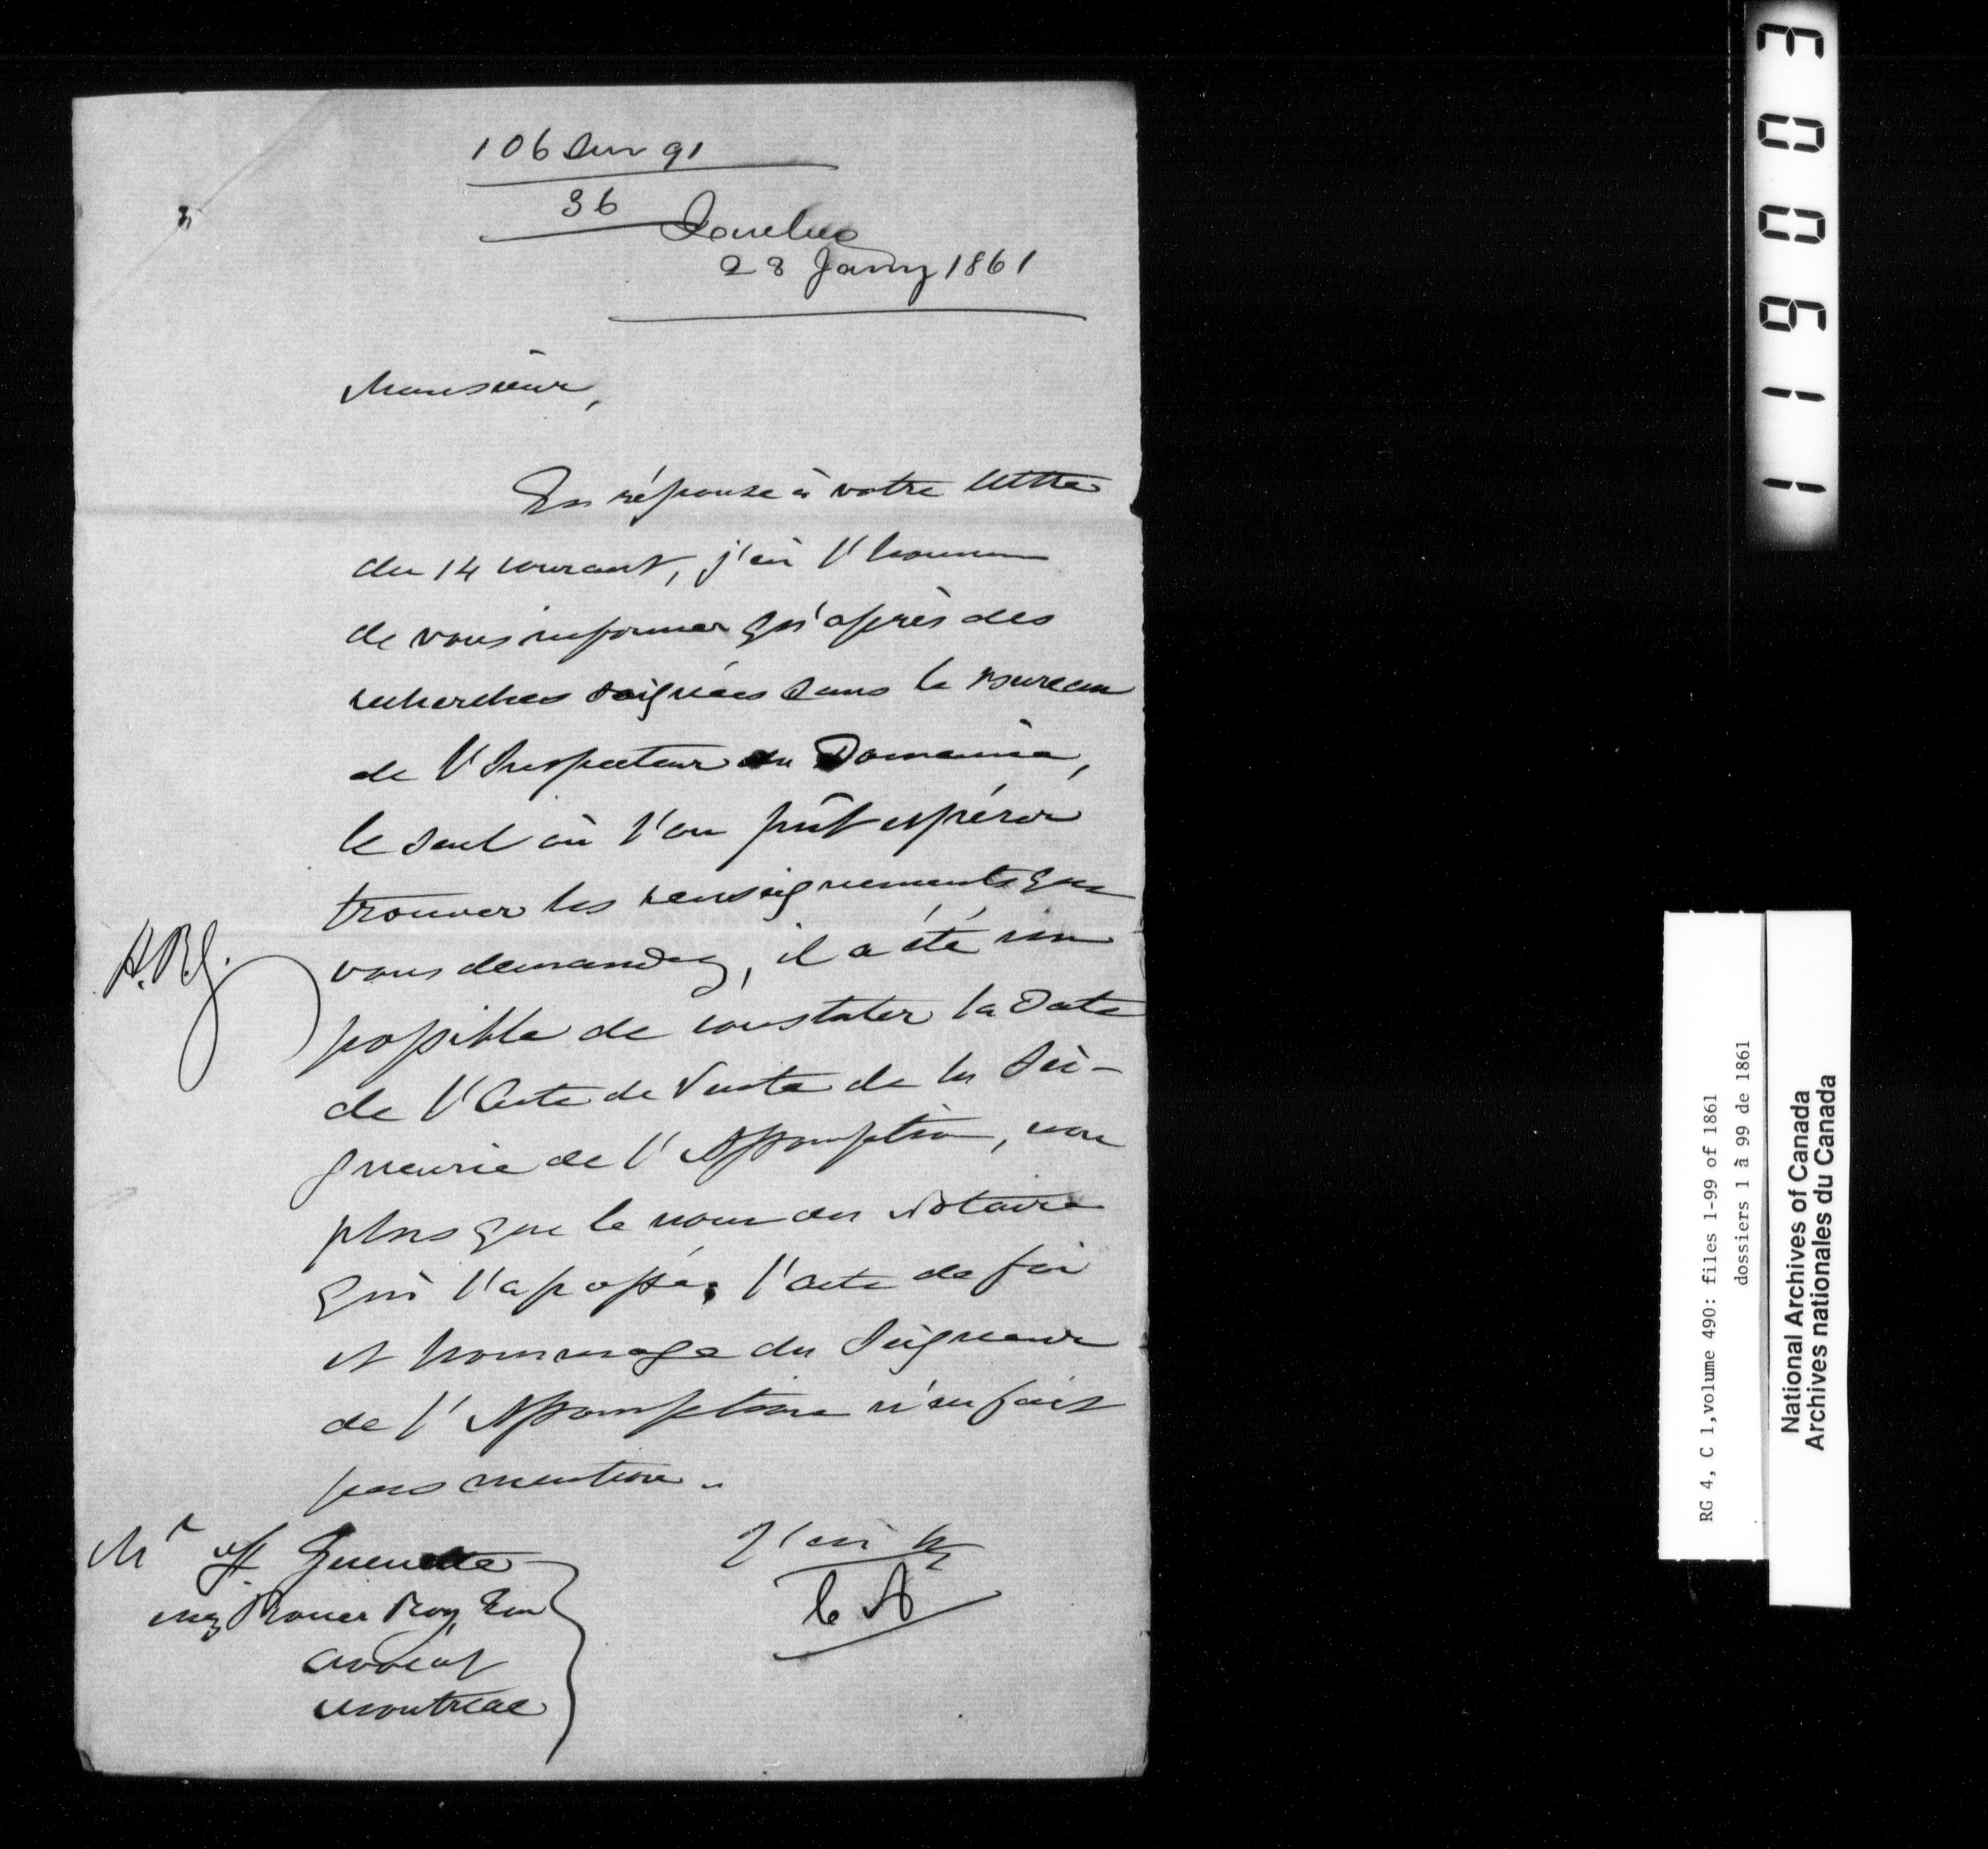 106 sur 91
36
Québec
28 Janvy 1861
Monsieur,
En réponse à votre lettre
du 14 courant, j'ai l'honneur
de vous informer qu'après des
recherches soignées dans le Bureau
de l'Inspecteur du Domaine,
le seul où l'on pût espérer
trouver les renseignements que
vous demandez, il a été im
possible de constater la Date
de l'Acte de Vente de la Sei-
gneurie de l'Assomption, non
plus que le nom du Notaire
qui l'a passé, l'acte de foi
et hommage du Seigneur
de l'Assomption n'en fait
pas mention.
J'ai &c
Mr Guenette
Roy
avocat
Montréal
119003
RG 4, C 1, volume 490: files 1-99 of 1861
dossiers 1 à 99 de 1861
National Archives of Canada
Archives nationales du Canada